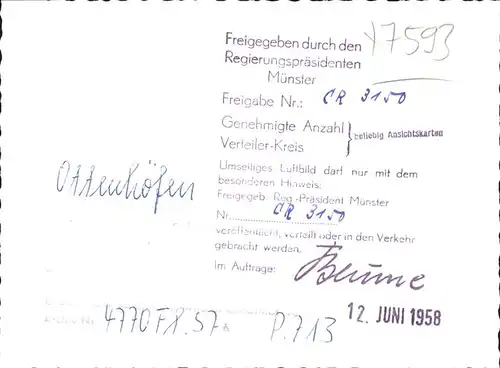 Freigegeben durch den
Regierungspräsidenten
Münster
Y7593
Freigabe Nr.: CR 3150
Genehmigte Anzahl
Verteiler-Kreis } beliebig Ansichtskarten
Umseitiges Luftbild darf nur mit dem
besonderen Hinweis:
Freigegeb. Reg.-Präsident Münster
Nr. CR 3150
veröffentlicht, verteilt oder in den Verkehr
gebracht werden.
Im Auftrage: Blume
Ottenhöfen
12. JUNI 1958
Archiv Nr. 4770 F8.57 A P.713